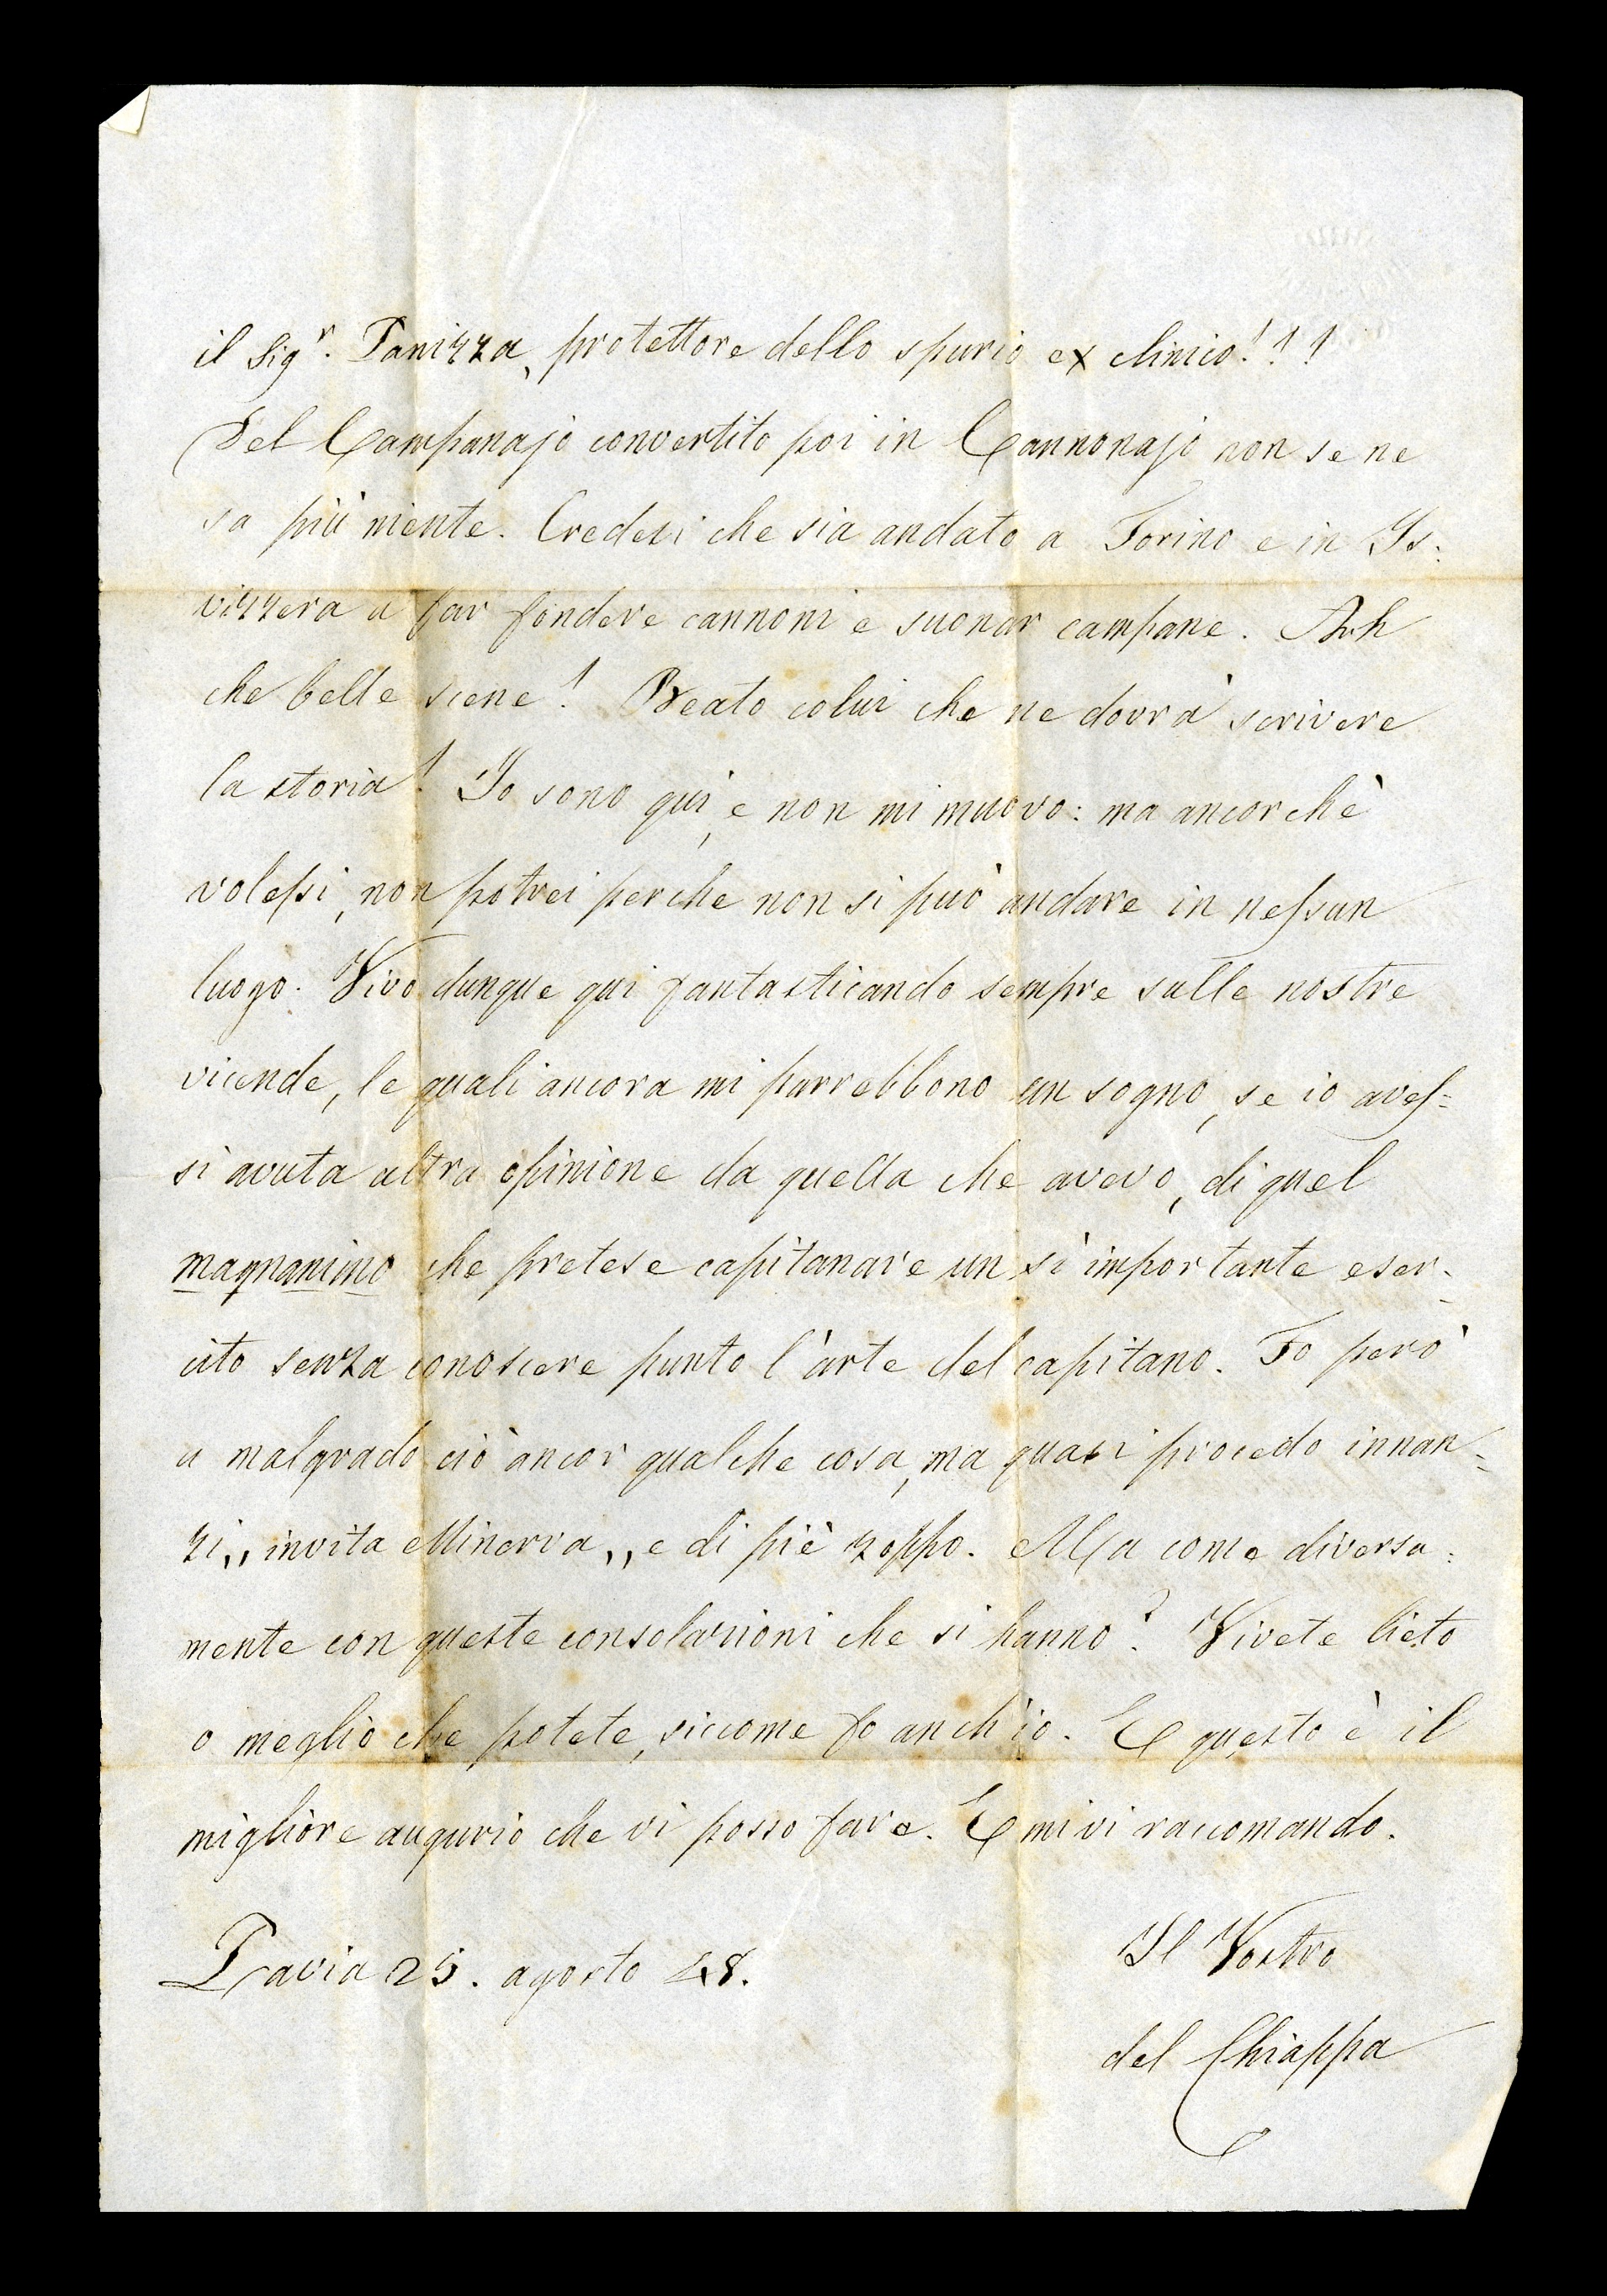 il Sigr. Panizza, protettore dello spurio ex clinico!!!
Del Campanajo convertito poi in Cannonajo non se ne
sa più niente. Credesi che sia andato a Torino e in Is=
vizzera a far fondere cannoni e suonar campane. Ah
che belle scene! Beato colui che ne dovrà scrivere
la storia! Io sono qui, e non mi muovo: ma ancorchè
volessi, non potrei perche non si può andare in nessun
luogo. Vivo dunque qui fantasticando sempre sulle nostre
vicende, le quali ancora mi parrebbono un sogno, se io aves=
si avuta altra opinione da quella che avevo, di quel
magnanimo che pretese capitanare un sì importante eser=
cito senza conoscere punto l'arte del capitano. Fo però
a malgrado ciò ancor qualche cosa, ma quasi procedo innan=
zi,, invita Minerva,, e di piè zoppo. Ma come diversa=
mente con queste consolazioni che si hanno? Vivete lieto
o meglio che potete, siccome fo anch'io. E questo è il
migliore augurio che vi posso fare. E mi vi raccomando.
Pavia 25. agosto 48.
Il Vostro
del Chiappa